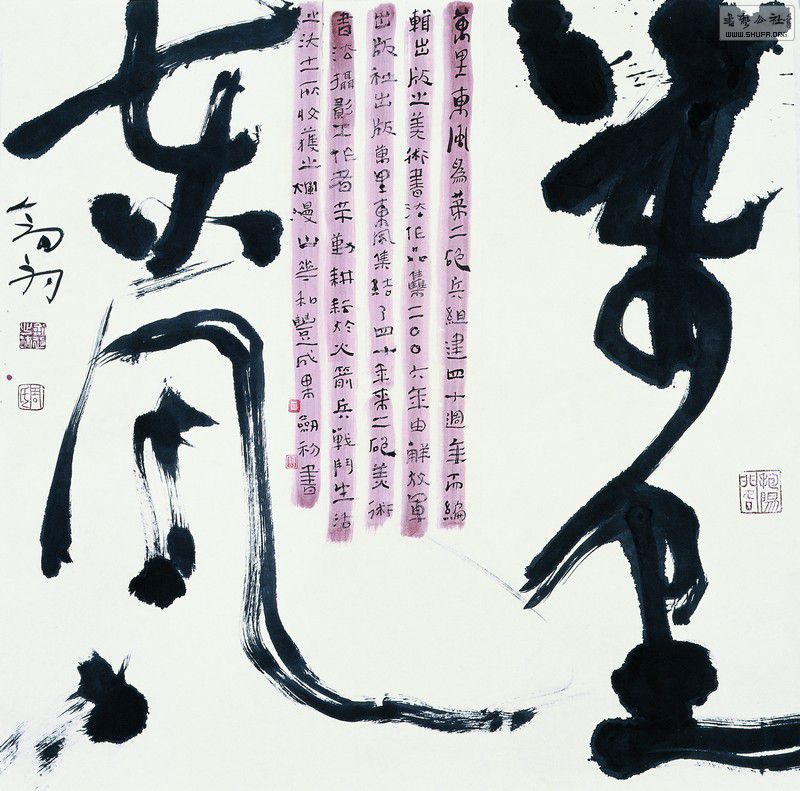 萬里
東風
萬里東風為第二砲兵組建四十週年而編
輯出版之美術書法作品集二〇〇六年由解放軍
出版社出版萬里東風集結了四十年來二砲美術
書法攝影工作者辛勤耕耘於火箭兵戰鬥生活
之沃土所收獲之爛漫山花和豐成果 書
WWW.SHUFA.ORG